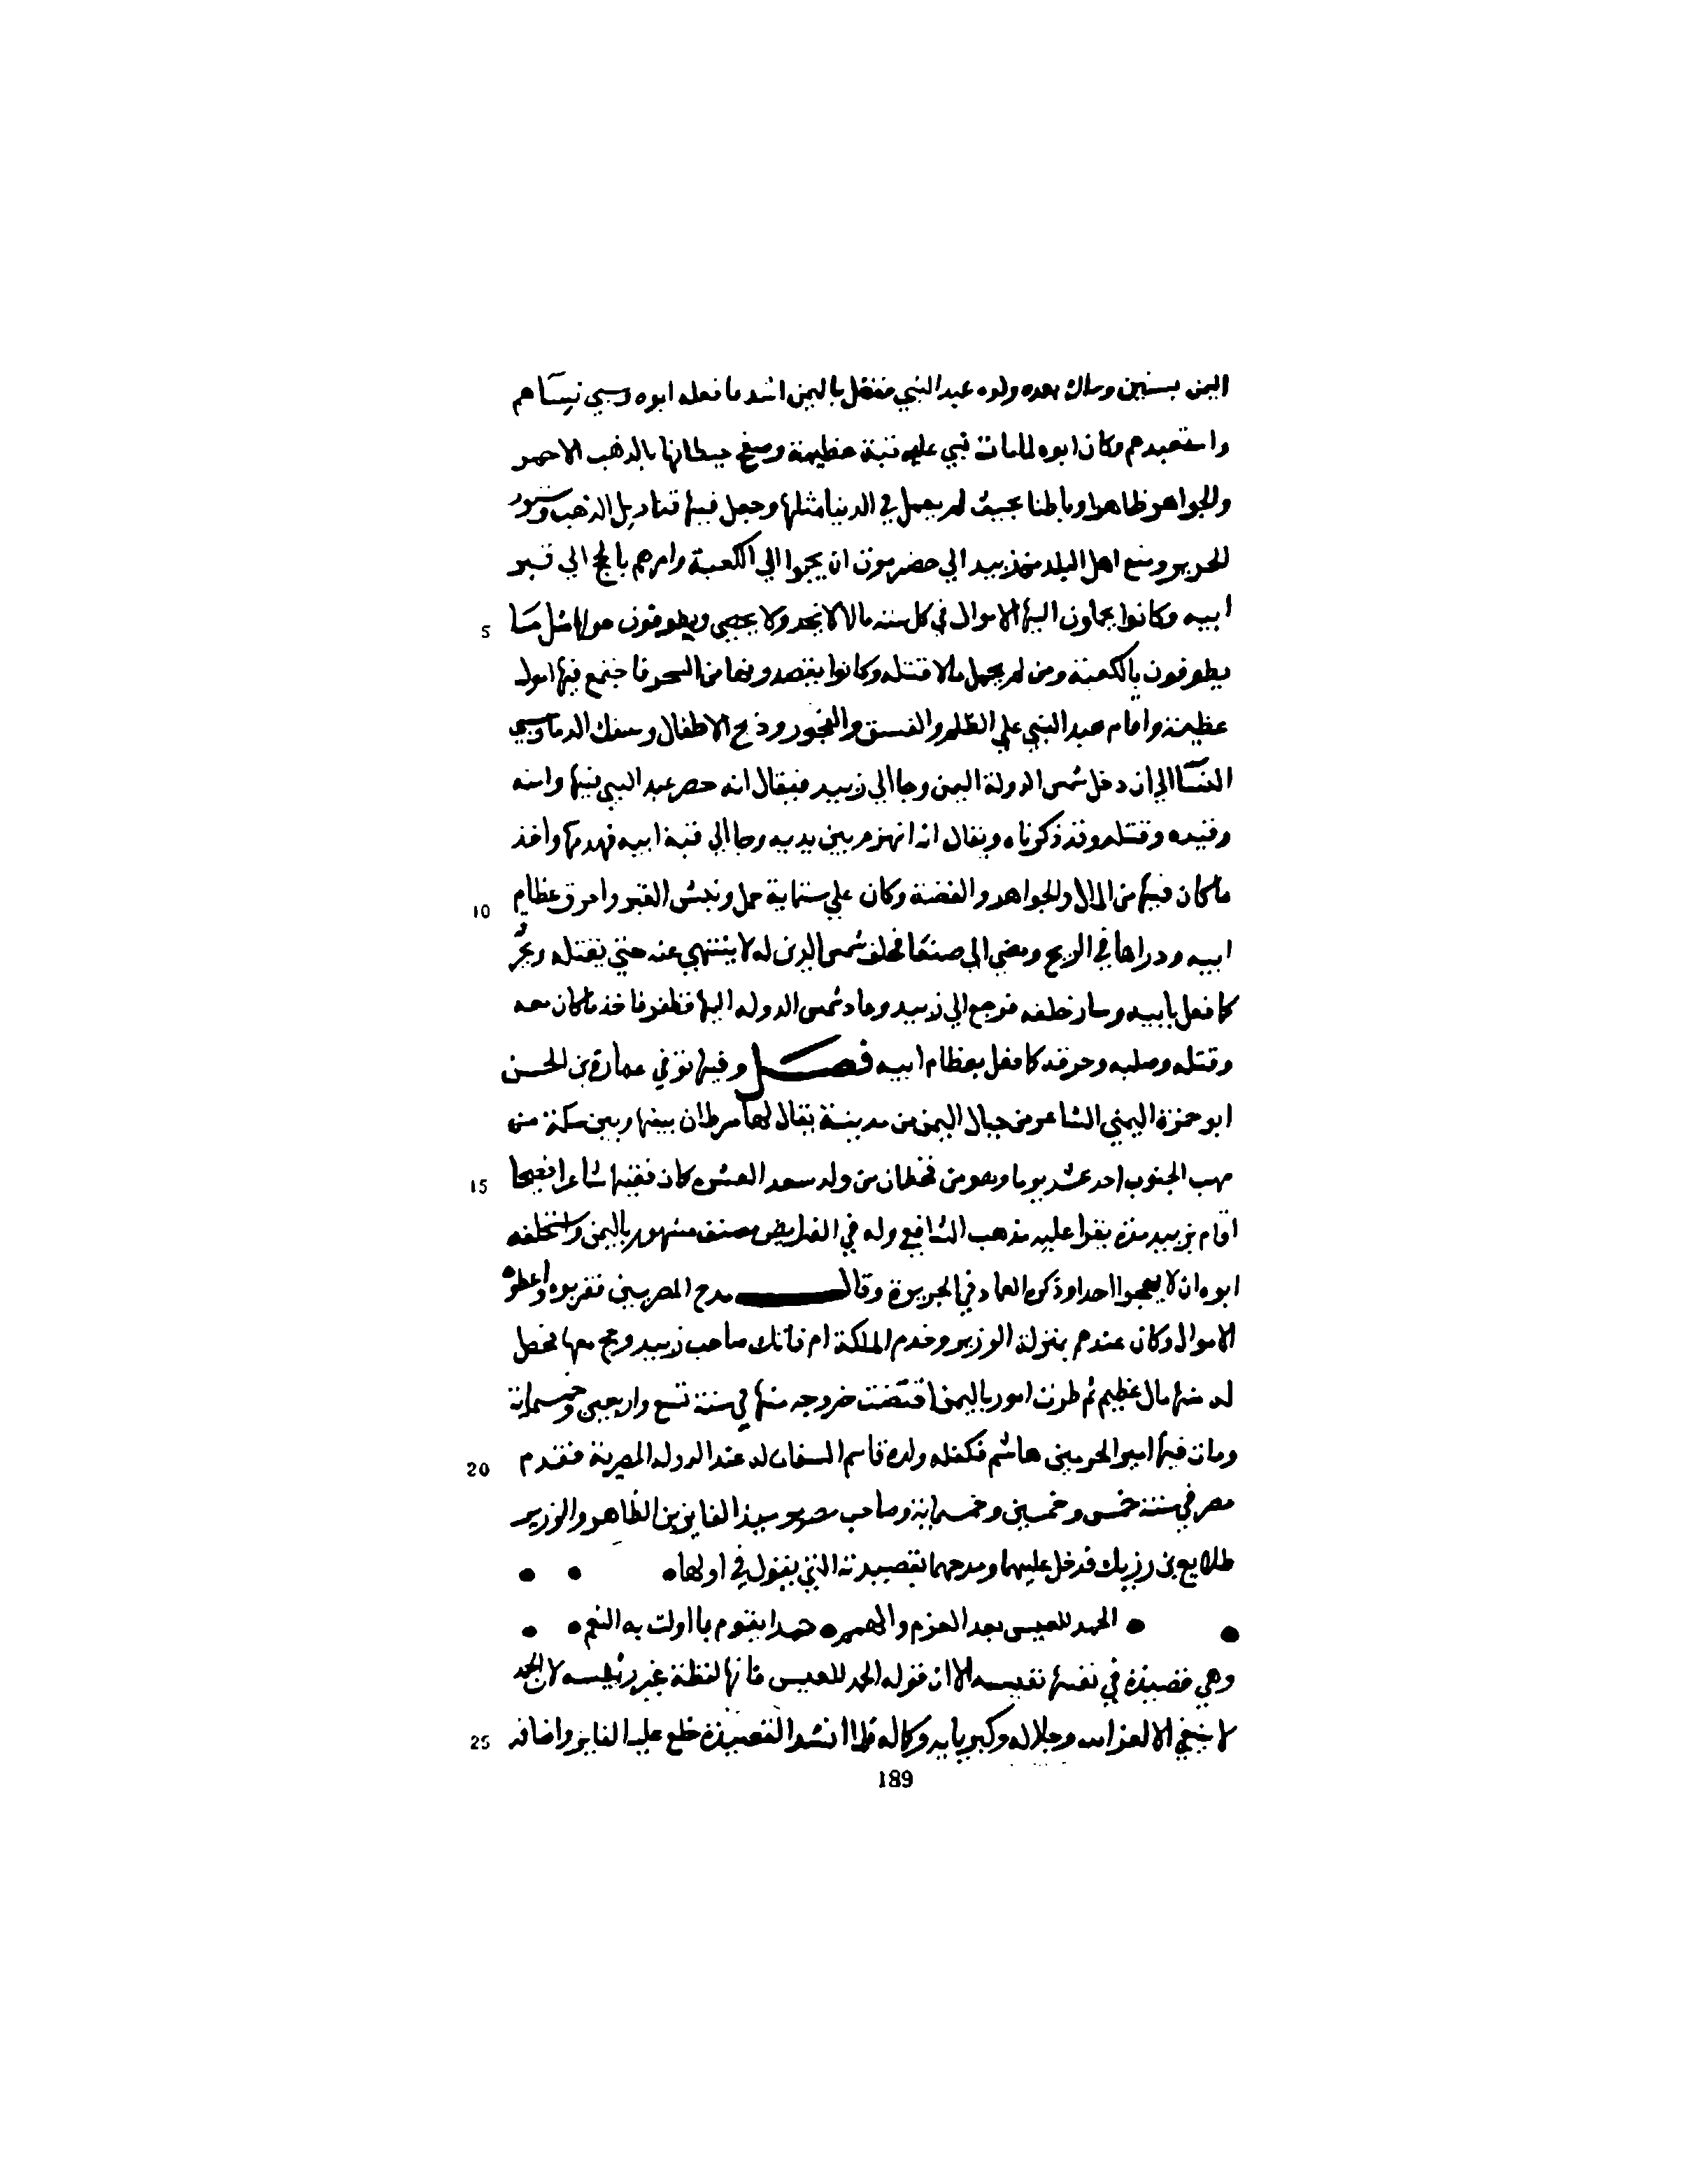 اليمن بسنين وملك بعده ولده عبد النبي ففعل باليمن اشد ما فعله ابوه وسبي نساهم
واستعبدهم وكان ابوه لما مات بني عليه قبة عظيمة وصفح حيطانها بالذهب الاحمر
والجواهر ظاهرا وباطنا بحيث لم يعمل في الدنيا مثلها وجعل فيها قناديل الذهب وستور
الحرير ومنع اهل البلد من زبيد الي حضرموت ان يحجوا الي الكعبة وامرهم بالحج الي قبر
5 ابيه وكانوا يحملون اليها الاموال في كل سنة مالا لا يحد ولا يحصي ويطوفون حولها مثل ما
يطوفون بالكعبة ومن لم يحمل مالا قتله وكانوا يقصدونها من السحر فاجتمع فيها اموال
عظيمة واقام عبد النبي علي الظلم والفسق والفجور وذبح الاطفال وسفك الدما وسبي
النسا الي ان دخل شمس الدولة اليمن وجا الي زبيد فيقال انه حصر عبد النبي فيها وامنه
وقيده وقتله وقد ذكرناه ويقال انه انهزم بين يديه وجا الي قبة ابيه فهدمها واخذ
10 ما كان فيها من المال والجواهر والفضة وكان علي ستماية حمل ونبش القبر واحرق عظام
ابيه وذراها في الريح ومضي الي صنعا فحلف شمس الدين له لا ينتهي عنه حتي يقتله ويحرقه
كما فعل بابيه وسار خلفه فرجع الي زبيد وعاد شمس الدوله اليها فظفر فاخذ ما كان معه
وقتله وصلبه وحرقه كما فعل بعظام ابيه فصل وفيها توفي عمارة بن الحسن
ابو حمزة اليمني الشاعر من جبال اليمن من مدينة يقال لها مرطان بينها وبين مكة من
15 مهب الجنوب احد عشر يوما وهو من قحطان من ولد سعد العشيره كان فقيها شاعرا فصيحا
اقام بزبيد مدة يقرا عليه مذهب الشافعي وله في الفرايض مصنف مشهور باليمن واستحلفه
ابوه ان لا يهجوا احدا وذكره العماد في الجريدة وقال مدح المصريين فقربوه واعطوه
الاموال وكان عندهم بمنزلة الوزير وخدم الملكة ام فاتك صاحب زبيد وحج معها فحصل
له منها مال عظيم ثم طرت امور باليمن اقتضت خروجه منها في سنة تسع واربعين وخمسمائة
20 ومات فيها امير الحرمين هاشم فكفله ولده قاسم السفارة له عند الدوله المصرية فقدم
مصر في سنة خمس وخمسين وخمسماية وصاحب مصر يوميذ الفايز بن الظاهر والوزير
طلايع بن رزيك فدخل عليهما ومدحهما بقصيدته التي يقول في اولها
الحمد للعيس بعد العزم والهمم حمدا يقوم بما اولت به النعم
وهي قصيدة في نفسها نفيسه الا ان قوله الحمد للعيس فانها لفظة غير رئيسه لان الحمد
25 لا ينبغي الا لعز الله وجلاله وكبريايه وكماله فلما انشد القصيدة خلع عليه الفايز واضافه
189